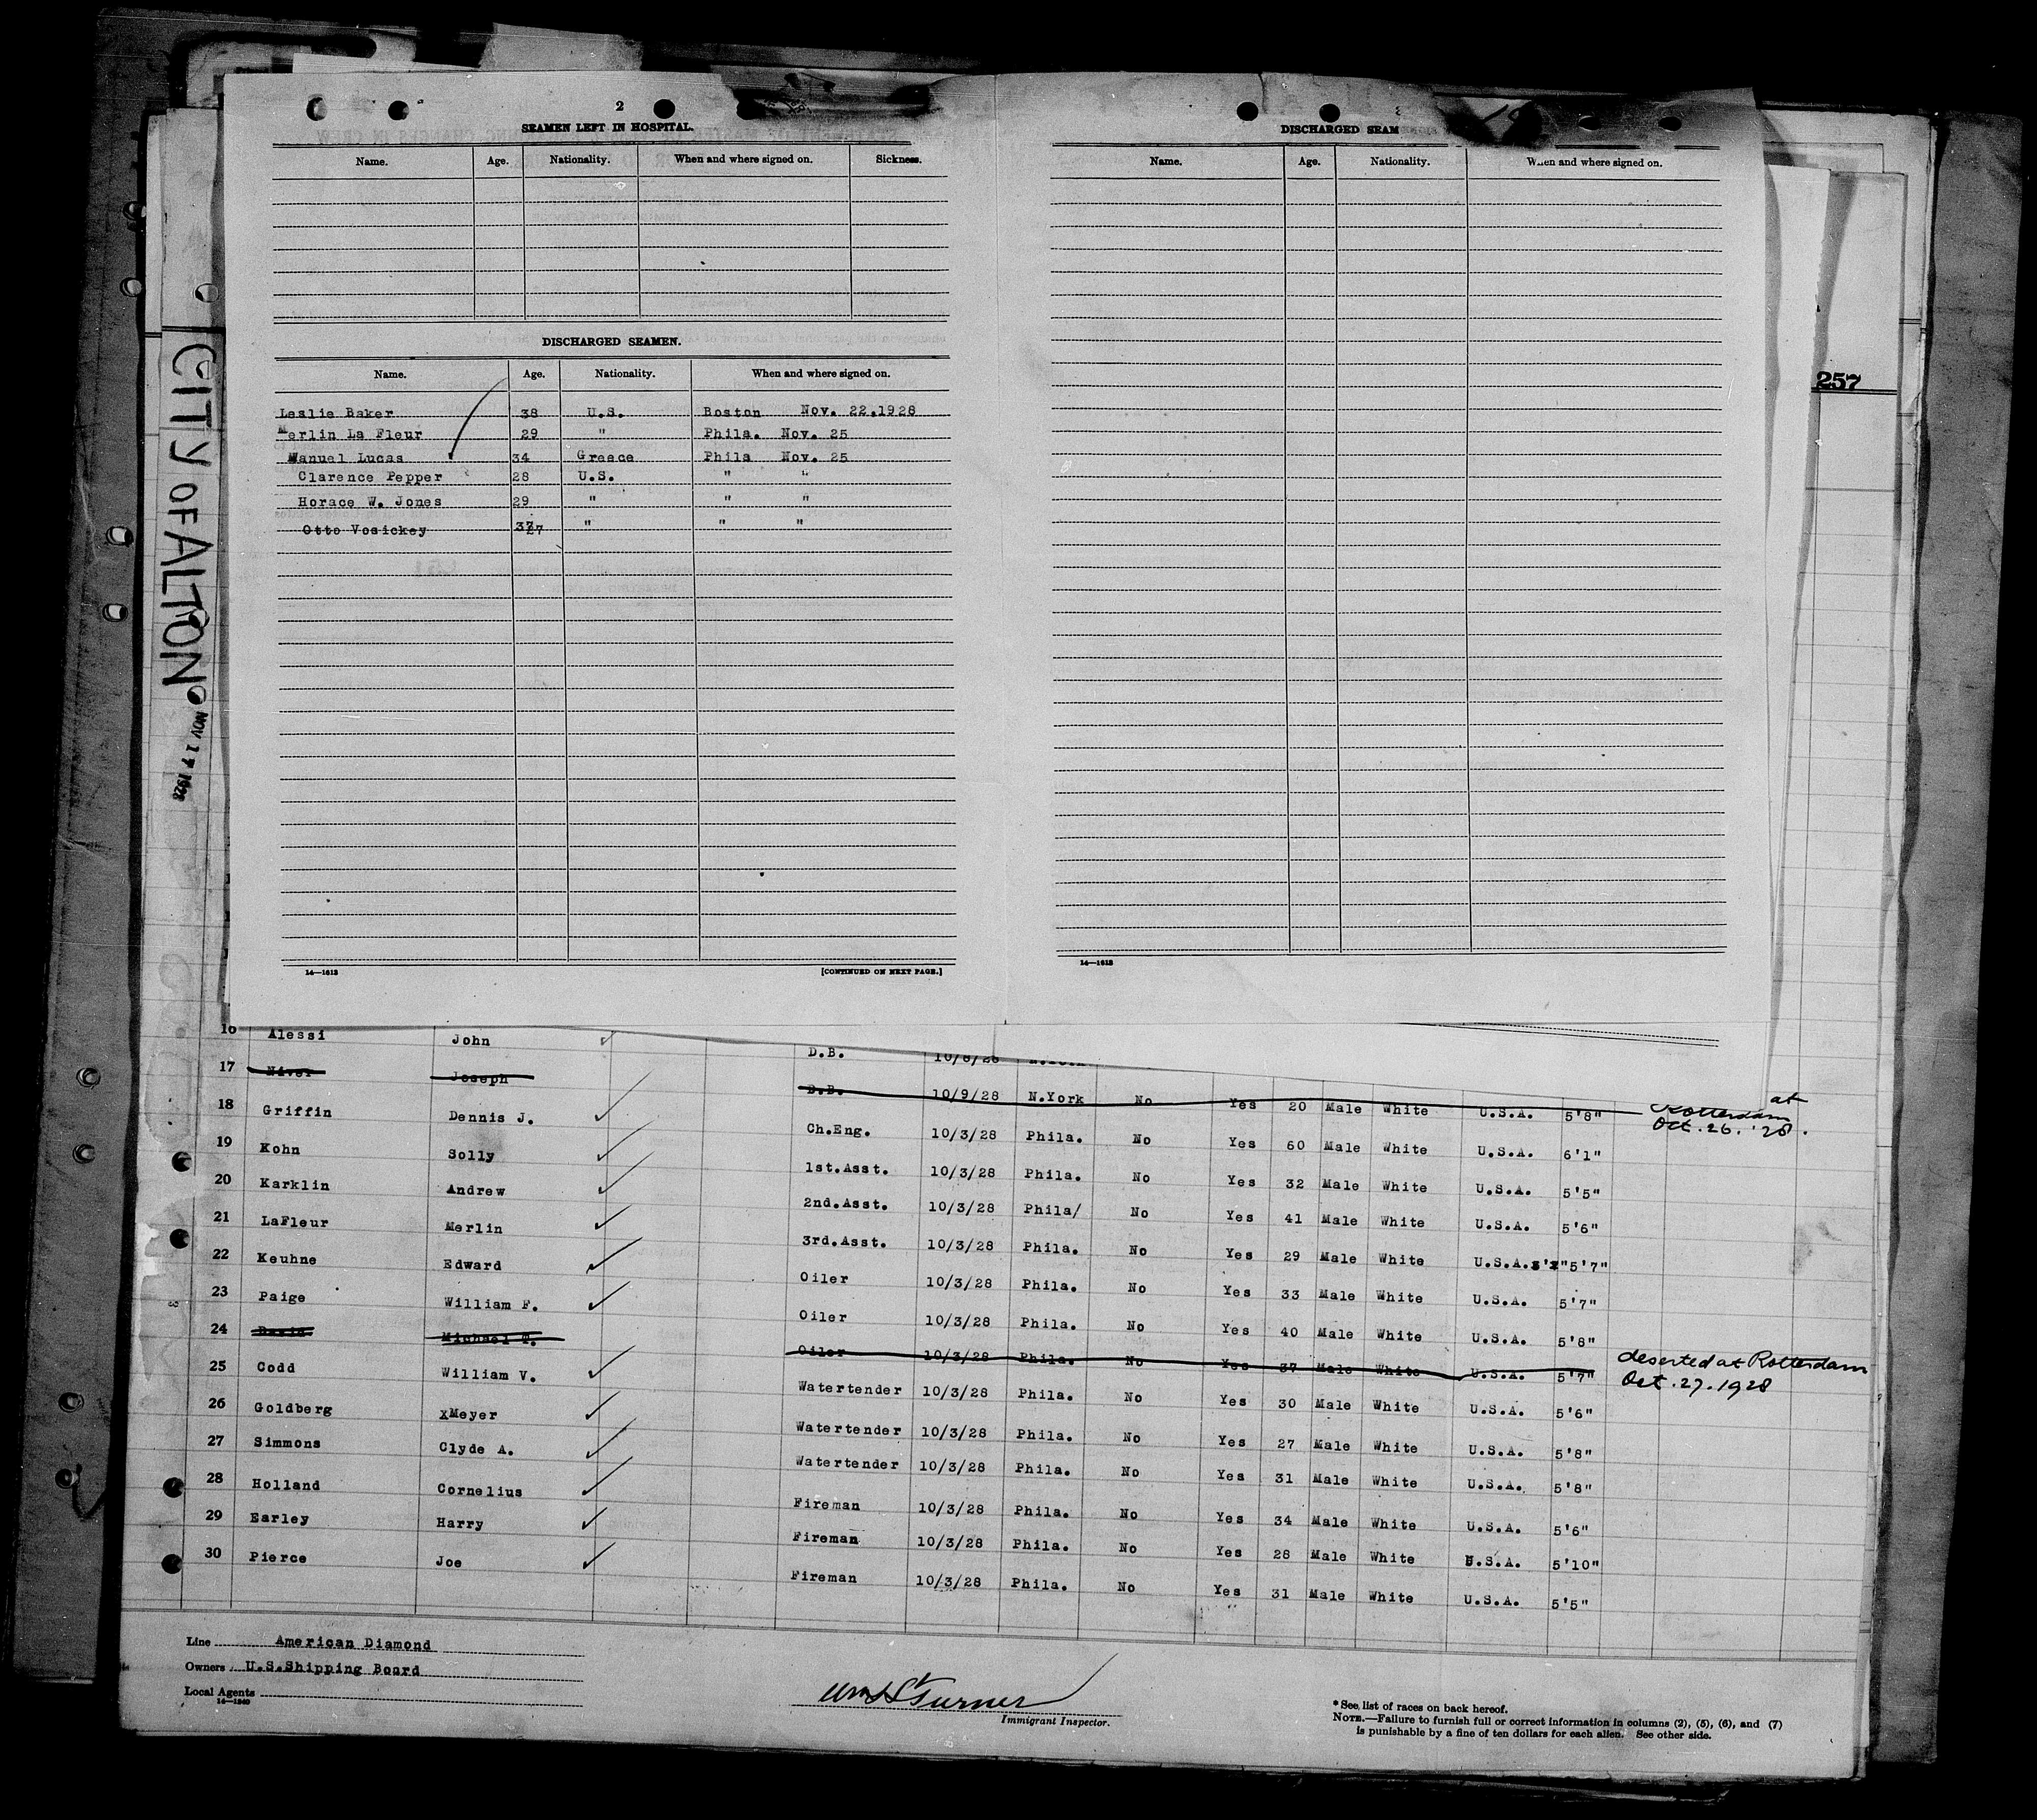 CITY OF ALTON
NOV 17 1928
257
2
SEAMEN LEFT IN HOSPITAL.
Name. Age. Nationality. When and where signed on. Sickness.
DISCHARGED SEAMEN.
Name. Age. Nationality. When and where signed on.
Leslie Baker 38 U.S. Boston Nov. 22.1928
Merlin La Fleur 29 " Phila. Nov. 25
Manuel Lucas 34 Greece Phila Nov. 25
Clarence Pepper 28 U.S. " "
Horace W. Jones 29 " " "
Otto Vosickey 27 " " "
14—1613
[CONTINUED ON NEXT PAGE.]
DISCHARGED SEAM
Name. Age. Nationality. When and where signed on.
14—1613
16 Alessi John D.B. 10/8/28
17 Niver Joseph D.B. 10/9/28 N.York No Yes 20 Male White U.S.A. 5'8" at Rotterdam Oct. 26. '28.
18 Griffin Dennis J. Ch.Eng. 10/3/28 Phila. No Yes 60 Male White U.S.A. 6'1"
19 Kohn Solly 1st.Asst. 10/3/28 Phila. No Yes 32 Male White U.S.A. 5'5"
20 Karklin Andrew 2nd.Asst. 10/3/28 Phila/ No Yes 41 Male White U.S.A. 5'6"
21 LaFleur Merlin 3rd.Asst. 10/3/28 Phila. No Yes 29 Male White U.S.A. 5'7"
22 Keuhne Edward Oiler 10/3/28 Phila. No Yes 33 Male White U.S.A. 5'7"
23 Paige William F. Oiler 10/3/28 Phila. No Yes 40 Male White U.S.A. 5'8"
24 David Michael T. Oiler 10/3/28 Phila. No Yes 37 Male White U.S.A. 5'7" deserted at Rotterdam Oct. 27. 1928
25 Codd William V. Watertender 10/3/28 Phila. No Yes 30 Male White U.S.A. 5'6"
26 Goldberg xMeyer Watertender 10/3/28 Phila. No Yes 27 Male White U.S.A. 5'8"
27 Simmons Clyde A. Watertender 10/3/28 Phila. No Yes 31 Male White U.S.A. 5'8"
28 Holland Cornelius Fireman 10/3/28 Phila. No Yes 34 Male White U.S.A. 5'6"
29 Earley Harry Fireman 10/3/28 Phila. No Yes 28 Male White U.S.A. 5'10"
30 Pierce Joe Fireman 10/3/28 Phila. No Yes 31 Male White U.S.A. 5'5"
Line American Diamond
Owners U.S.Shipping Board
Local Agents
14—1240
Turner
Immigrant Inspector.
* See list of races on back hereof.
NOTE.—Failure to furnish full or correct information in columns (2), (5), (6), and (7)
is punishable by a fine of ten dollars for each alien. See other side.